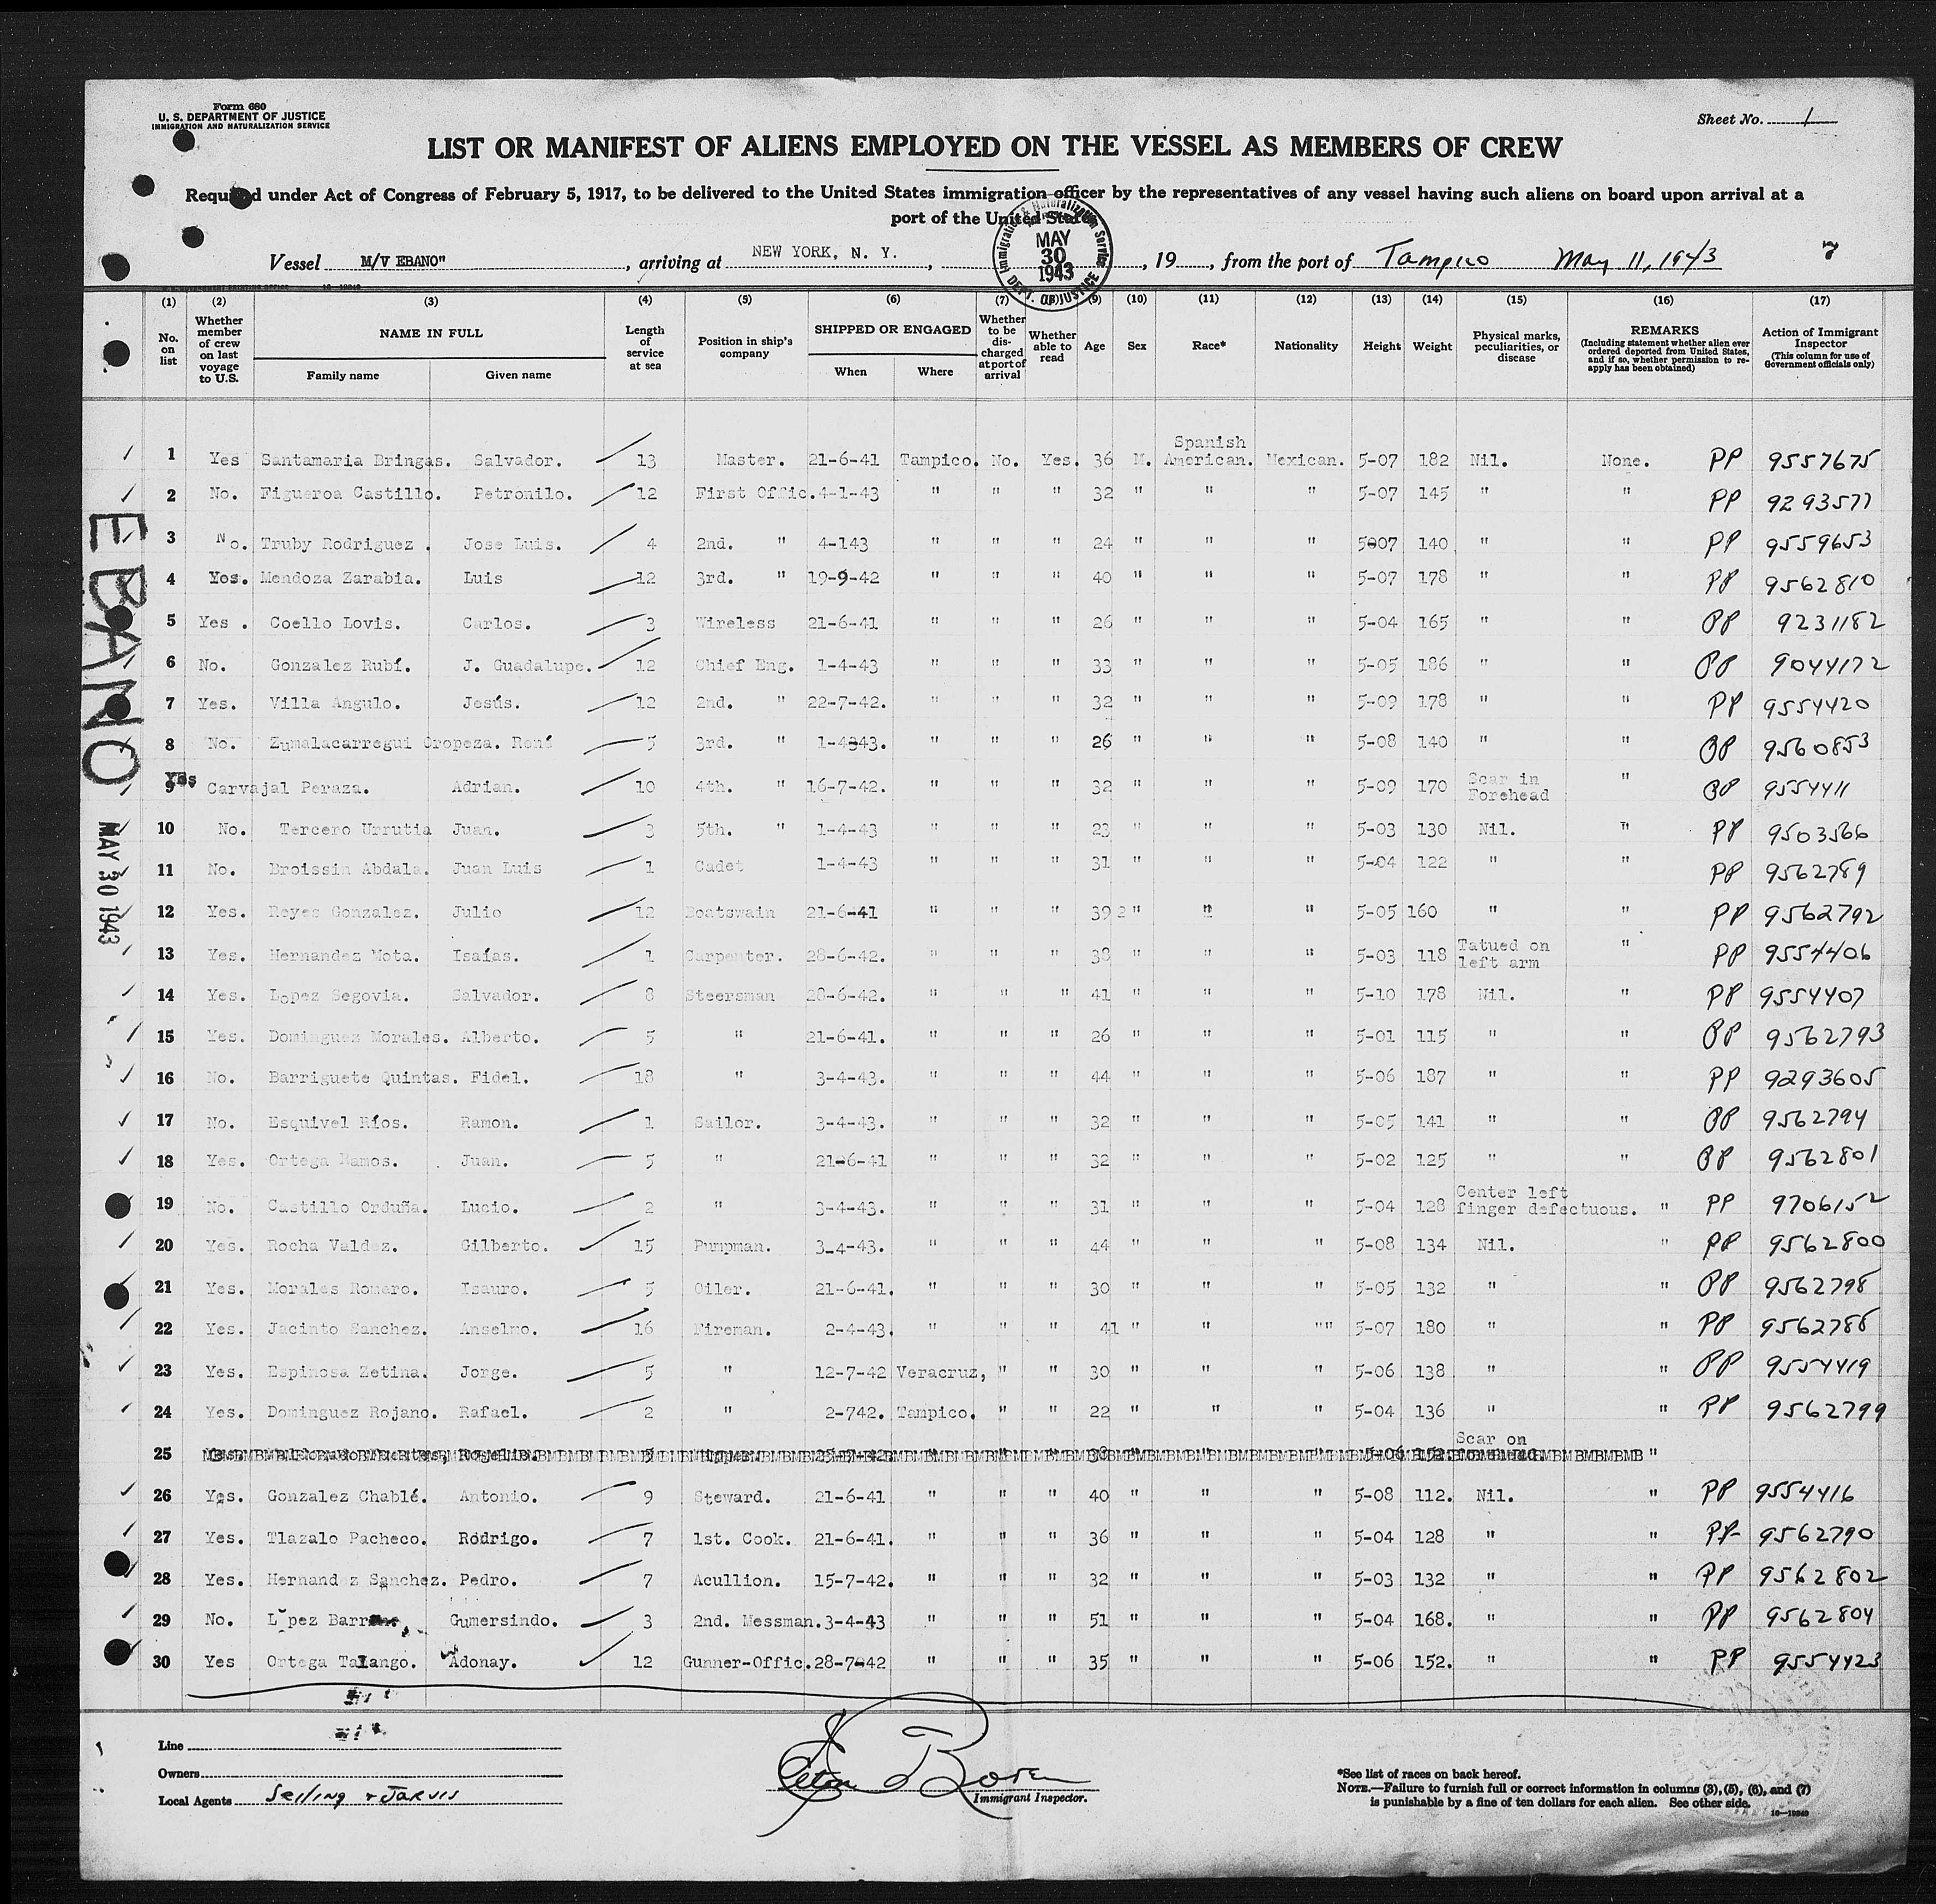 Form 680
U. S. DEPARTMENT OF JUSTICE
IMMIGRATION AND NATURALIZATION SERVICE
Sheet No. 1
LIST OR MANIFEST OF ALIENS EMPLOYED ON THE VESSEL AS MEMBERS OF CREW
Required under Act of Congress of February 5, 1917, to be delivered to the United States immigration officer by the representatives of any vessel having such aliens on board upon arrival at a
port of the United States
Immigration & Naturalization Service MAY 30 1943 DEPT. OF JUSTICE
Vessel M/V EBANO", arriving at NEW YORK, N. Y., , 19 , from the port of Tampico May 11, 1943 7
(1) (2) (3) (4) (5) (6) (7) (8) (9) (10) (11) (12) (13) (14) (15) (16) (17)
No. on list
Whether member of crew on last voyage to U.S.
NAME IN FULL
Family name Given name
Length of service at sea
Position in ship's company
SHIPPED OR ENGAGED
When Where
Whether to be discharged at port of arrival
Whether able to read
Age Sex Race* Nationality Height Weight
Physical marks, peculiarities, or disease
REMARKS
(Including statement whether alien ever ordered deported from United States, and if so, whether permission to reapply has been obtained)
Action of Immigrant Inspector
(This column for use of Government officials only)
1 Yes Santamaria Bringas. Salvador. 13 Master. 21-6-41 Tampico. No. Yes. 36 M. Spanish American. Mexican. 5-07 182 Nil. None. PP 9557675
2 No. Figueroa Castillo. Petronilo. 12 First Offic. 4-1-43 " " " 32 " " " 5-07 145 " " PP 9293577
3 No. Truby Rodriguez . Jose Luis. 4 2nd. " 4-143 " " " 24 " " " 5007 140 " " PP 9559653
4 Yes. Mendoza Zarabia. Luis 12 3rd. " 19-9-42 " " " 40 " " " 5-07 178 " " PP 9562810
5 Yes . Coello Lovis. Carlos. 3 Wireless 21-6-41 " " " 26 " " " 5-04 165 " " PP 9231182
6 No. Gonzalez Rubí. J. Guadalupe. 12 Chief Eng. 1-4-43 " " " 33 " " " 5-05 186 " " PP 9044172
7 Yes. Villa Angulo. Jesús. 12 2nd. " 22-7-42. " " " 32 " " " 5-09 178 " " PP 9554420
8 No. Zumalacarregui Oropeza. René 5 3rd. " 1-4943. " " " 26 " " " 5-08 140 " " PP 9560853
9 Yes Carvajal Peraza. Adrian. 10 4th. " 16-7-42. " " " 32 " " " 5-09 170 Scar in Forehead " PP 9554411
10 No. Tercero Urrutia Juan. 3 5th. " 1-4-43 " " " 23 " " " 5-03 130 Nil. " PP 9503566
11 No. Broissin Abdala. Juan Luis 1 Cadet 1-4-43 " " " 31 " " " 5-04 122 " " PP 9562789
12 Yes. Reyes Gonzalez. Julio 12 Boatswain 21-6-41 " " " 39 2 " " " 5-05 160 " " PP 9562792
13 Yes. Hernandez Mota. Isaías. 1 Carpenter. 28-6-42. " " " 38 " " " 5-03 118 Tatued on left arm " PP 9554406
14 Yes. Lopez Segovia. Salvador. 8 Steersman 28-6-42. " " " 41 " " " 5-10 178 Nil. " PP 9554407
15 Yes. Dominguez Morales. Alberto. 5 " 21-6-41. " " " 26 " " " 5-01 115 " " PP 9562793
16 No. Barriguete Quintas. Fidel. 18 " 3-4-43. " " " 44 " " " 5-06 187 " " PP 9293605
17 No. Esquivel Ríos. Ramon. 1 Sailor. 3-4-43. " " " 32 " " " 5-05 141 " " PP 9562794
18 Yes. Ortega Ramos. Juan. 5 " 21-6-41 " " " 32 " " " 5-02 125 " " PP 9562801
19 No. Castillo Orduña. Lucio. 2 " 3-4-43. " " " 31 " " " 5-04 128 Center left finger defectuous. " PP 9706152
20 Yes. Rocha Valdez. Gilberto. 15 Pumpman. 3-4-43. " " " 44 " " " 5-08 134 Nil. " PP 9562800
21 Yes. Morales Romero. Isauro. 5 Oiler. 21-6-41. " " " 30 " " " 5-05 132 " " PP 9562798
22 Yes. Jacinto Sanchez. Anselmo. 16 Fireman. 2-4-43. " " " 41 " " "" 5-07 180 " " PP 9562786
23 Yes. Espinosa Zetina. Jorge. 5 " 12-7-42 Veracruz, " " 30 " " " 5-06 138 " " PP 9554419
24 Yes. Dominguez Rojano. Rafael. 2 " 2-742. Tampico. " " 22 " " " 5-04 136 " " PP 9562799
25 Scar on "
26 Yes. Gonzalez Chablé. Antonio. 9 Steward. 21-6-41 " " " 40 " " " 5-08 112. Nil. " PP 9554416
27 Yes. Tlazalo Pacheco. Rodrigo. 7 1st. Cook. 21-6-41. " " " 36 " " " 5-04 128 " " PP 9562790
28 Yes. Hernandez Sanchez. Pedro. 7 Acullion. 15-7-42. " " " 32 " " " 5-03 132 " " PP 9562802
29 No. Gumersindo. 3 2nd. Messman. 3-4-43 " " " 51 " " " 5-04 168. " " PP 9562804
30 Yes Ortega Talango. Adonay. 12 Gunner-Offic. 28-7-42 " " " 35 " " " 5-06 152. " " PP 9554423
EBANO
MAY 30 1943
Line
Owners
Local Agents Seiling & Jarvis
Immigrant Inspector.
*See list of races on back hereof.
NOTE.—Failure to furnish full or correct information in columns (3), (5), (6), and (7)
is punishable by a fine of ten dollars for each alien. See other side.